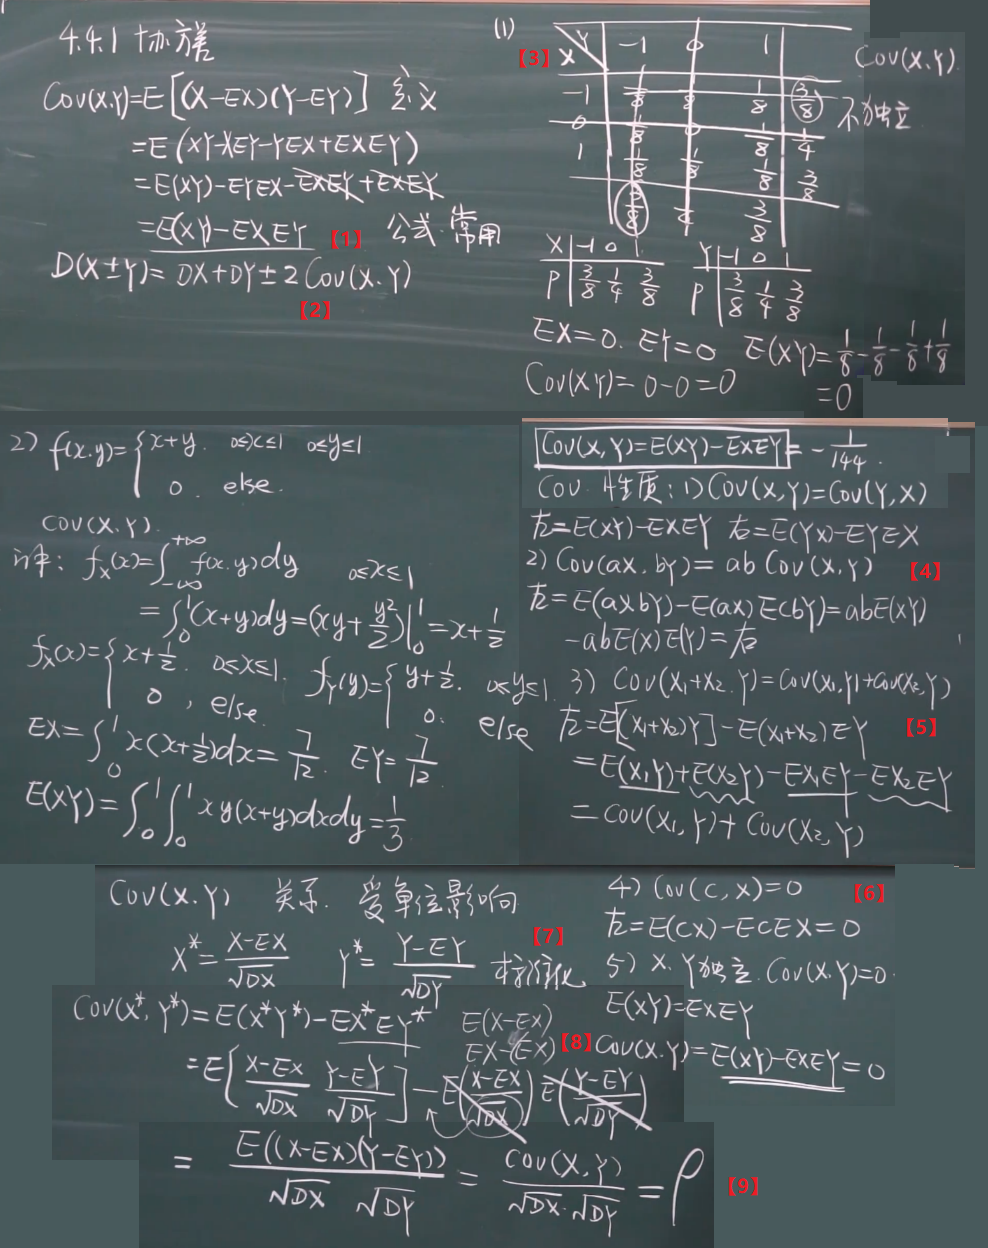 4.4.1 协方差
Cov(X,Y)=E[(X-EX)(Y-EY)] 定义
=E(XY-XEY-YEX+EXEY)
=E(XY)-EYEX-EXEY+EXEY
=E(XY)-EXEY 【1】 公式 常用
D(X±Y)= DX+DY±2Cov(X,Y)
【2】
(1)
【3】 X Y -1 0 1 Cov(X,Y)
-1 1/8 1/8 1/8 3/8 不独立
0 1/8 0 1/8 1/4
1 1/8 1/8 1/8 3/8
3/8 1/4 3/8
X -1 0 1
P 3/8 1/4 3/8
Y -1 0 1
P 3/8 1/4 3/8
EX=0. EY=0 E(XY)=1/8-1/8-1/8+1/8
=0
Cov(XY)=0-0=0
2) f(x,y)={x+y. 0≤x≤1 0≤y≤1
0. else.
COV(X,Y).
解: fX(x)=∫_{-∞}^{+∞} f(x,y)dy 0≤x≤1
=∫_0^1 (x+y)dy=(xy+y²/2)|_0^1=x+1/2
fX(x)={x+1/2. 0≤x≤1. fY(y)={y+1/2. 0≤y≤1
0, else. 0. else
EX=∫_0^1 x(x+1/2)dx=7/12 EY=7/12
E(XY)=∫_0^1∫_0^1 xy(x+y)dxdy=1/3
Cov(X,Y)=E(XY)-EXEY=-1/144.
Cov. 性质: 1) Cov(X,Y)=Cov(Y,X)
左=E(XY)-EXEY 右=E(YX)-EYEX
2) Cov(aX,bY)=abCov(X,Y) 【4】
左=E(aXbY)-E(aX)E(bY)=abE(XY)
-abE(X)E(Y)=右
3) Cov(X₁+X₂,Y)=Cov(X₁,Y)+Cov(X₂,Y)
左=E[(X₁+X₂)Y]-E(X₁+X₂)EY 【5】
=E(X₁Y)+E(X₂Y)-EX₁EY-EX₂EY
=Cov(X₁,Y)+Cov(X₂,Y)
4) Cov(C,X)=0 【6】
左=E(CX)-ECEX=0
5) X,Y独立. Cov(X,Y)=0.
E(XY)=EXEY
Cov(X,Y)=E(XY)-EXEY=0
Cov(X,Y) 关系. 受单位影响
X*=(X-EX)/√DX Y*=(Y-EY)/√DY 标准化 【7】
Cov(X*,Y*)=E(X*Y*)-EX*EY*
E(X-EX)
EX-(EX) 【8】
=E[(X-EX)/√DX (Y-EY)/√DY]-E((X-EX)/√DX)E((Y-EY)/√DY)
=E((X-EX)(Y-EY))/(√DX √DY)=Cov(X,Y)/(√DX·√DY)=ρ 【9】